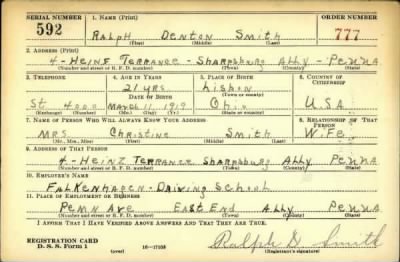 SERIAL NUMBER 1. NAME (Print) ORDER NUMBER
592 RALPH DENTON SMITH 777
(First) (Middle) (Last)
2. ADDRESS (Print)
4-HEINZ TERRANCE - SHARPSBURG ALLY - PENNA
(Number and street or R. F. D. number) (Town) (County) (State)
3. TELEPHONE 4. AGE IN YEARS 5. PLACE OF BIRTH 6. COUNTRY OF CITIZENSHIP
21 YRS LISBON
DATE OF BIRTH (Town or county)
St. 4000 MARCH 11, 1919 OHIO U.S.A.
(Exchange) (Number) (Mo.) (Day) (Yr.) (State or country)
7. NAME OF PERSON WHO WILL ALWAYS KNOW YOUR ADDRESS 8. RELATIONSHIP OF THAT PERSON
MRS CHRISTINE SMITH WIFE
(Mr., Mrs., Miss) (First) (Middle) (Last)
9. ADDRESS OF THAT PERSON
4-HEINZ TERRANCE SHARPSBURG ALLY PENNA
(Number and street or R. F. D. number) (Town) (County) (State)
10. EMPLOYER'S NAME
FALKENHAGEN - DRIVING SCHOOL
11. PLACE OF EMPLOYMENT OR BUSINESS
PENN AVE EAST END ALLY PENNA
(Number and street or R. F. D. number) (Town) (County) (State)
I AFFIRM THAT I HAVE VERIFIED ABOVE ANSWERS AND THAT THEY ARE TRUE.
REGISTRATION CARD
D. S. S. Form 1 (over) 16—17105 Ralph D Smith
(Registrant's signature)